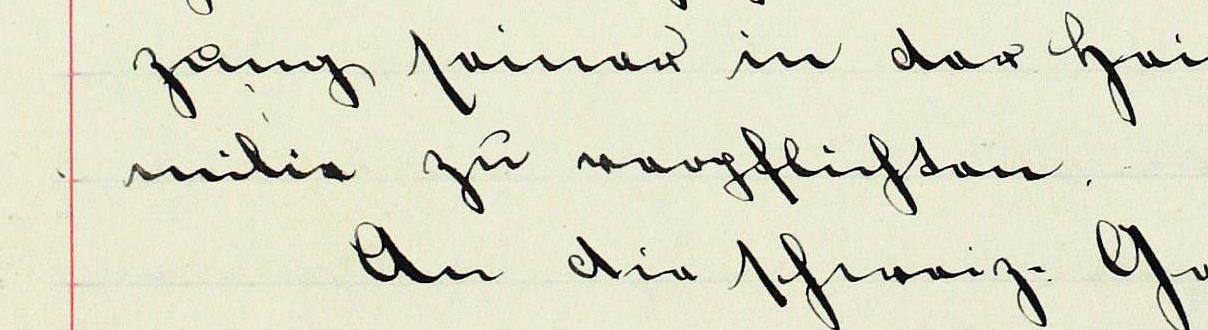 zung seiner in der Hei
milie zu verpflichten.
An die schweiz. Ge